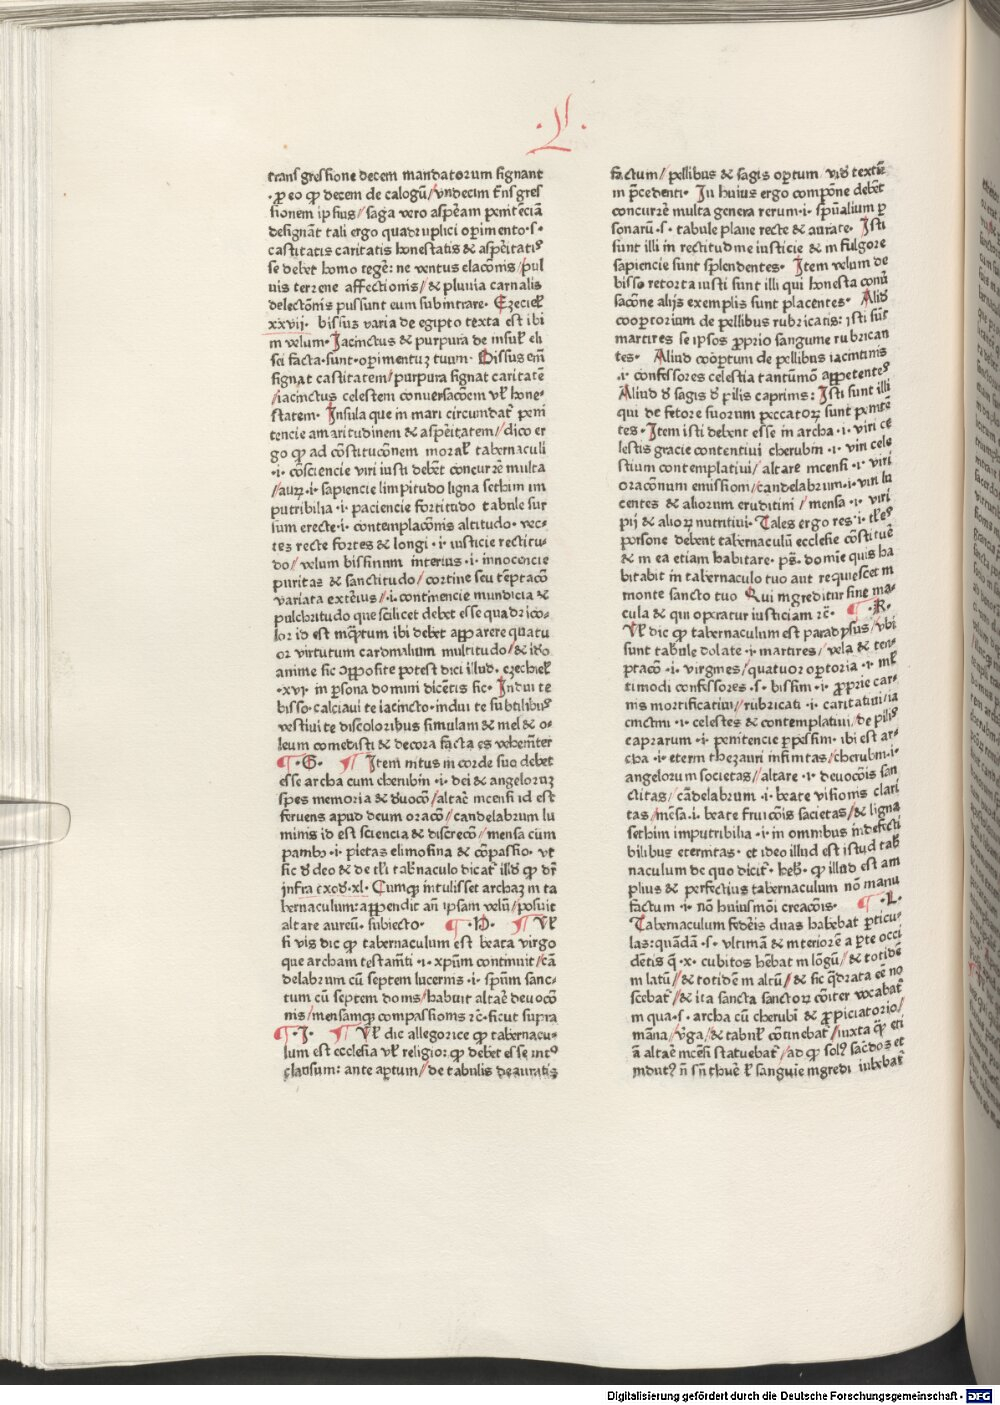 ·L·
transgressione decem mandatorum signant
·p eo qp decem de calogū/vndecim t̄nsgres
sionem ipsius//saga vero asp̄eam penitēciā
designāt tali ergo quadruplici opimento·s·
castitatis caritatis honestatis & asp̄eitatis
se debet homo teḡe: ne ventus elacōnis/pul
uis terrene affectionis/& pluuia carnalis
delectōnis pussunt eum subintrare· Ezeciel
xxvij· bissus varia de egipto texta est ibi
in velum· Jacinctus & purpura de insul' eli
sei facta·sunt·opimentuꝫ tuum· Bissus em̄
signat castitatem/purpura signat caritatē
/iacinctus celestem conuersacōem vl' hone-
statem· Insula que in mari circumdat̄ peni
tencie amaritudinem & asp̄eitatem//dico er
go qp ad cōstitucōnem moral' tabernaculi
·i· cōsciencie viri iusti debet concurrē multa
/auꝝ·i·sapiencie limpitudo ligna sethim im
putribilia·i·paciencie fortitudo tabule sur
sum erecte·i·contemplacōnis altitudo·vec-
tes recte fortes & longi·i·iusticie rectitu-
do/velum bissinum interius·i·innocencie
puritas & sanctitudo/cortine seu tēptacō
variata exteius/·i·continencie mundicia &
pulchritudo que scilicet debet esse quadrico-
lor id est inceptum ibi debet apparere quatu
or virtutum cardinalium multitudo/& ido
anime sic ꝯpposite potest dici illud·ezechiel
·xvi· in psona domini dicētis sic· Indui te
bisso·calciaui te iacincto·indui te subtilibus
vestiui te discoloribus simulam & mel & o-
leum comedisti & decora facta es vehem̄ter
¶·G· ¶Item intus in corde suo debet
esse archa cum cherubin·i·dei & angelorum
spes memoria & deuocō/altaē incensi id est
feruens apud deum oracō/candelabrum lu
minis id est sciencia & discrecō/mensa cum
panibus·i·pietas elimosina & cōpassio·vt
sic de deo & de tali tabnaculo dicat̄ illud qp dr̄
infra exod·xl· Cumqꝫ intulisset archaꝫ in ta
bernaculum:appendit an̄ ipsam velum/posuit
altare aureū·subiecto· ¶·H· ¶Vl'
si vis dic qp tabernaculum est beata virgo
que archam testamēti·i·xpm continuit/cā
delabrum cū septem lucernis·i·spm sanc-
tum cū septem donis/habuit altaē deuocō
nis/mensamqꝫ compassionis rc̄·sicut supra
¶·I· ¶Vl' dic allegorice qp tabernacu-
lum est ecclesia vl' religio:qp debet esse intus
clausum: ante aptum/de tabulis deauratis
factum/pellibus & sagis optum vid textū
in p̄cedenti· In huius ergo compōne debet
concurrē multa genera rerum·i·spualium p
sonarū·s·tabule plane recte & aurate· Isti
sunt illi in rectitudine iusticie & in fulgore
sapiencie sunt splendentes· Item velum de
bisso retorta iusti sunt illi qui honesta conu
sacōne alijs exemplis sunt placentes· Aliud
coopertorium de pellibus rubricatis: isti sūt
martires se ipsos pprio sanguine rubrican
tes· Aliud cooptum de pellibus iacintinis
·i·confessores celestia tantūmō appetentes
Aliud de sagis de pilis caprinis: Isti sunt illi
qui de fetore suorum peccatoꝝ sunt penitē
tes·Item isti debent esse in archa·i·viri ce
lestis gracie contentiui cherubin·i·viri cele
stium contemplatiui/altare incensi·i·viri
oracōnum emissioni/candelabrum·i·viri lu
centes & aliorum eruditini/mensa·i·viri
pij & alioꝝ nutritiui· Tales ergo res·i·tles
persone debent tabernaculū ecclesie cōstituē
& in ea etiam habitare·ps· domine quis ha
bitabit in tabernaculo tuo aut requiescet in
monte sancto tuo Qui ingreditur sine ma-
cula & qui operatur iusticiam rc̄· ¶·K·
Vl' dic qp tabernaculum est paradysus/vbi
sunt tabule dolate·i·martires/vela & ten-
ptacō·i·virgines/quatuor optoria·i·ml'
timodi confessores·s·bissini·i·pprie car-
nis mortificatiui/rubricati·i·caritatiui/ia
cinctini·i·celestes & contemplatiui/de pilis
caprarum·i·penitencie ppessini· ibi est ar-
cha·i·eterni thezauri infinitas/cherubin·i·
angelorum societas/altare·i·deuocōis san
ctitas/cādelabrum·i·beate visionis clari
tas/mēsa·i·beate fruicōis sacietas/& ligna
sethim imputribilia·i·in omnibus indefecti
bilibus eternitas·et ideo illud est istud tab
naculum de quo dicit̄· heb· qp illud est am
plius & perfectius tabernaculum nō manu
factum·i·nō huiusmōi creacōis· ¶·L·
Tabernaculum federis duas habebat pticu-
las:quādā·s·vltimā & interiorē a pte occi
dētis q̄·x·cubitos hēbat in lōgū/& totidē
in latū//& totidē in altū/& sic qdrata eē no
scebat̄/& ita sancta sanctoꝝ cōiter vocabat̄
in qua·s·archa cū cherubi & ppiciatorio/
māna/vga/& tabul' cōtinebat̄/iuxta q̄ eti
ā altaē incēsi statuebat̄/ad qp solus sacdos et